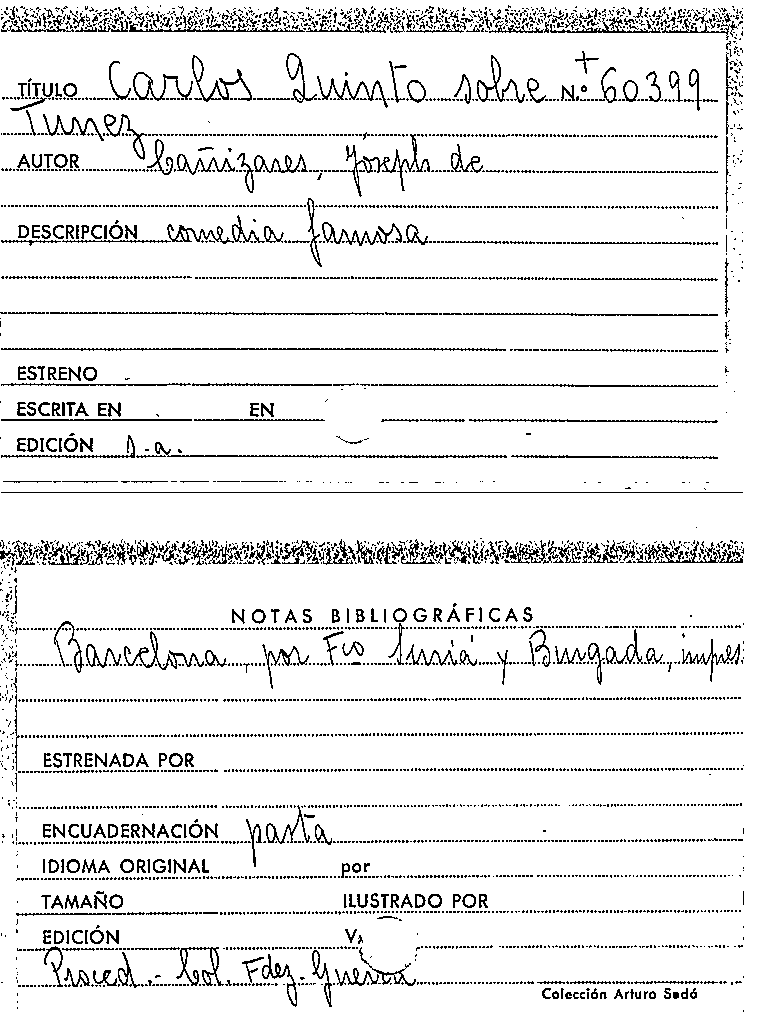 TÍTULO Carlos Quinto sobre N.º + 60399
Tunez
AUTOR Cañizares, Joseph de
DESCRIPCIÓN comedia famosa
ESTRENO
ESCRITA EN EN
EDICIÓN s.a.
NOTAS BIBLIOGRÁFICAS
Barcelona, por Fco Suriá y Burgada, impres
ESTRENADA POR
ENCUADERNACIÓN pasta
IDIOMA ORIGINAL por
TAMAÑO ILUSTRADO POR
EDICIÓN V
Proced.- Col. Fdez-Guerra
Colección Arturo Sedó